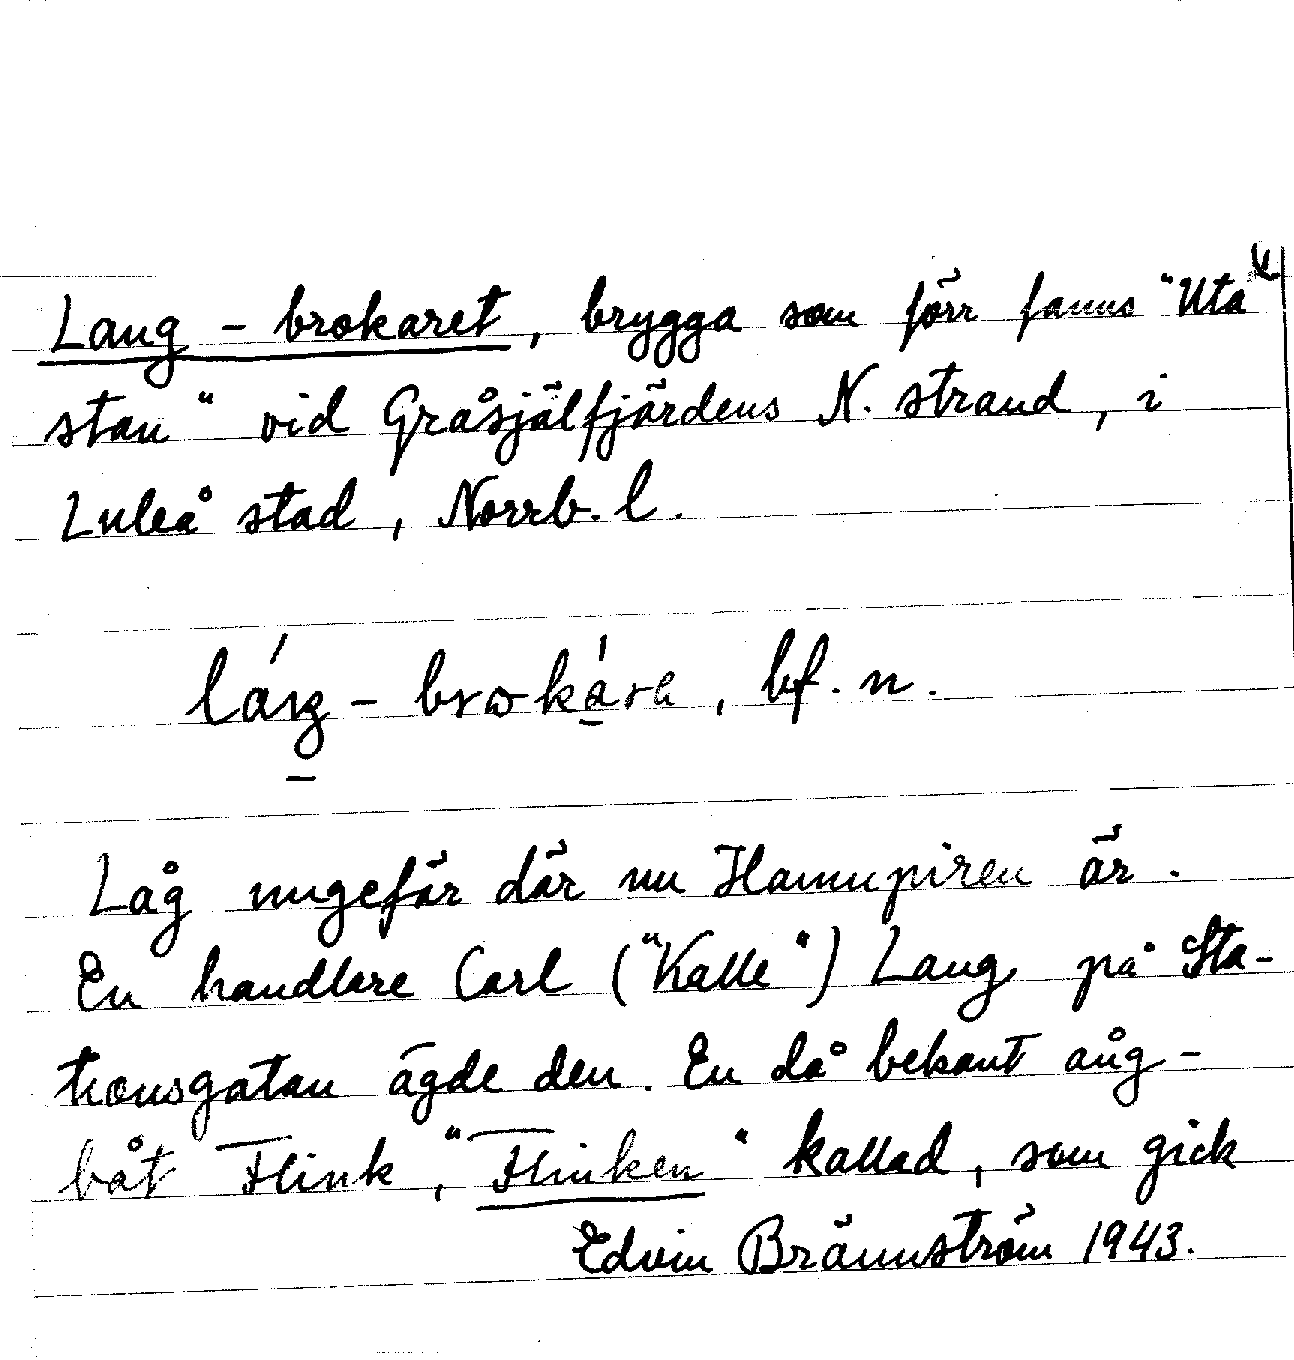 Lang - brokaret, brygga som förr fanns "Uta
stan" vid Gråsjälfjärdens N. strand, i
Luleå stad, Norrb. l.
bf. n.
Låg ungefär där nu Hamnpiren är.
En handlare Carl ("Kalle") Lang på Sta-
tionsgatan ägde den. En då bekant ång-
båt Flink, "Flinken" kallad, som gick
Edvin Brännström 1943.